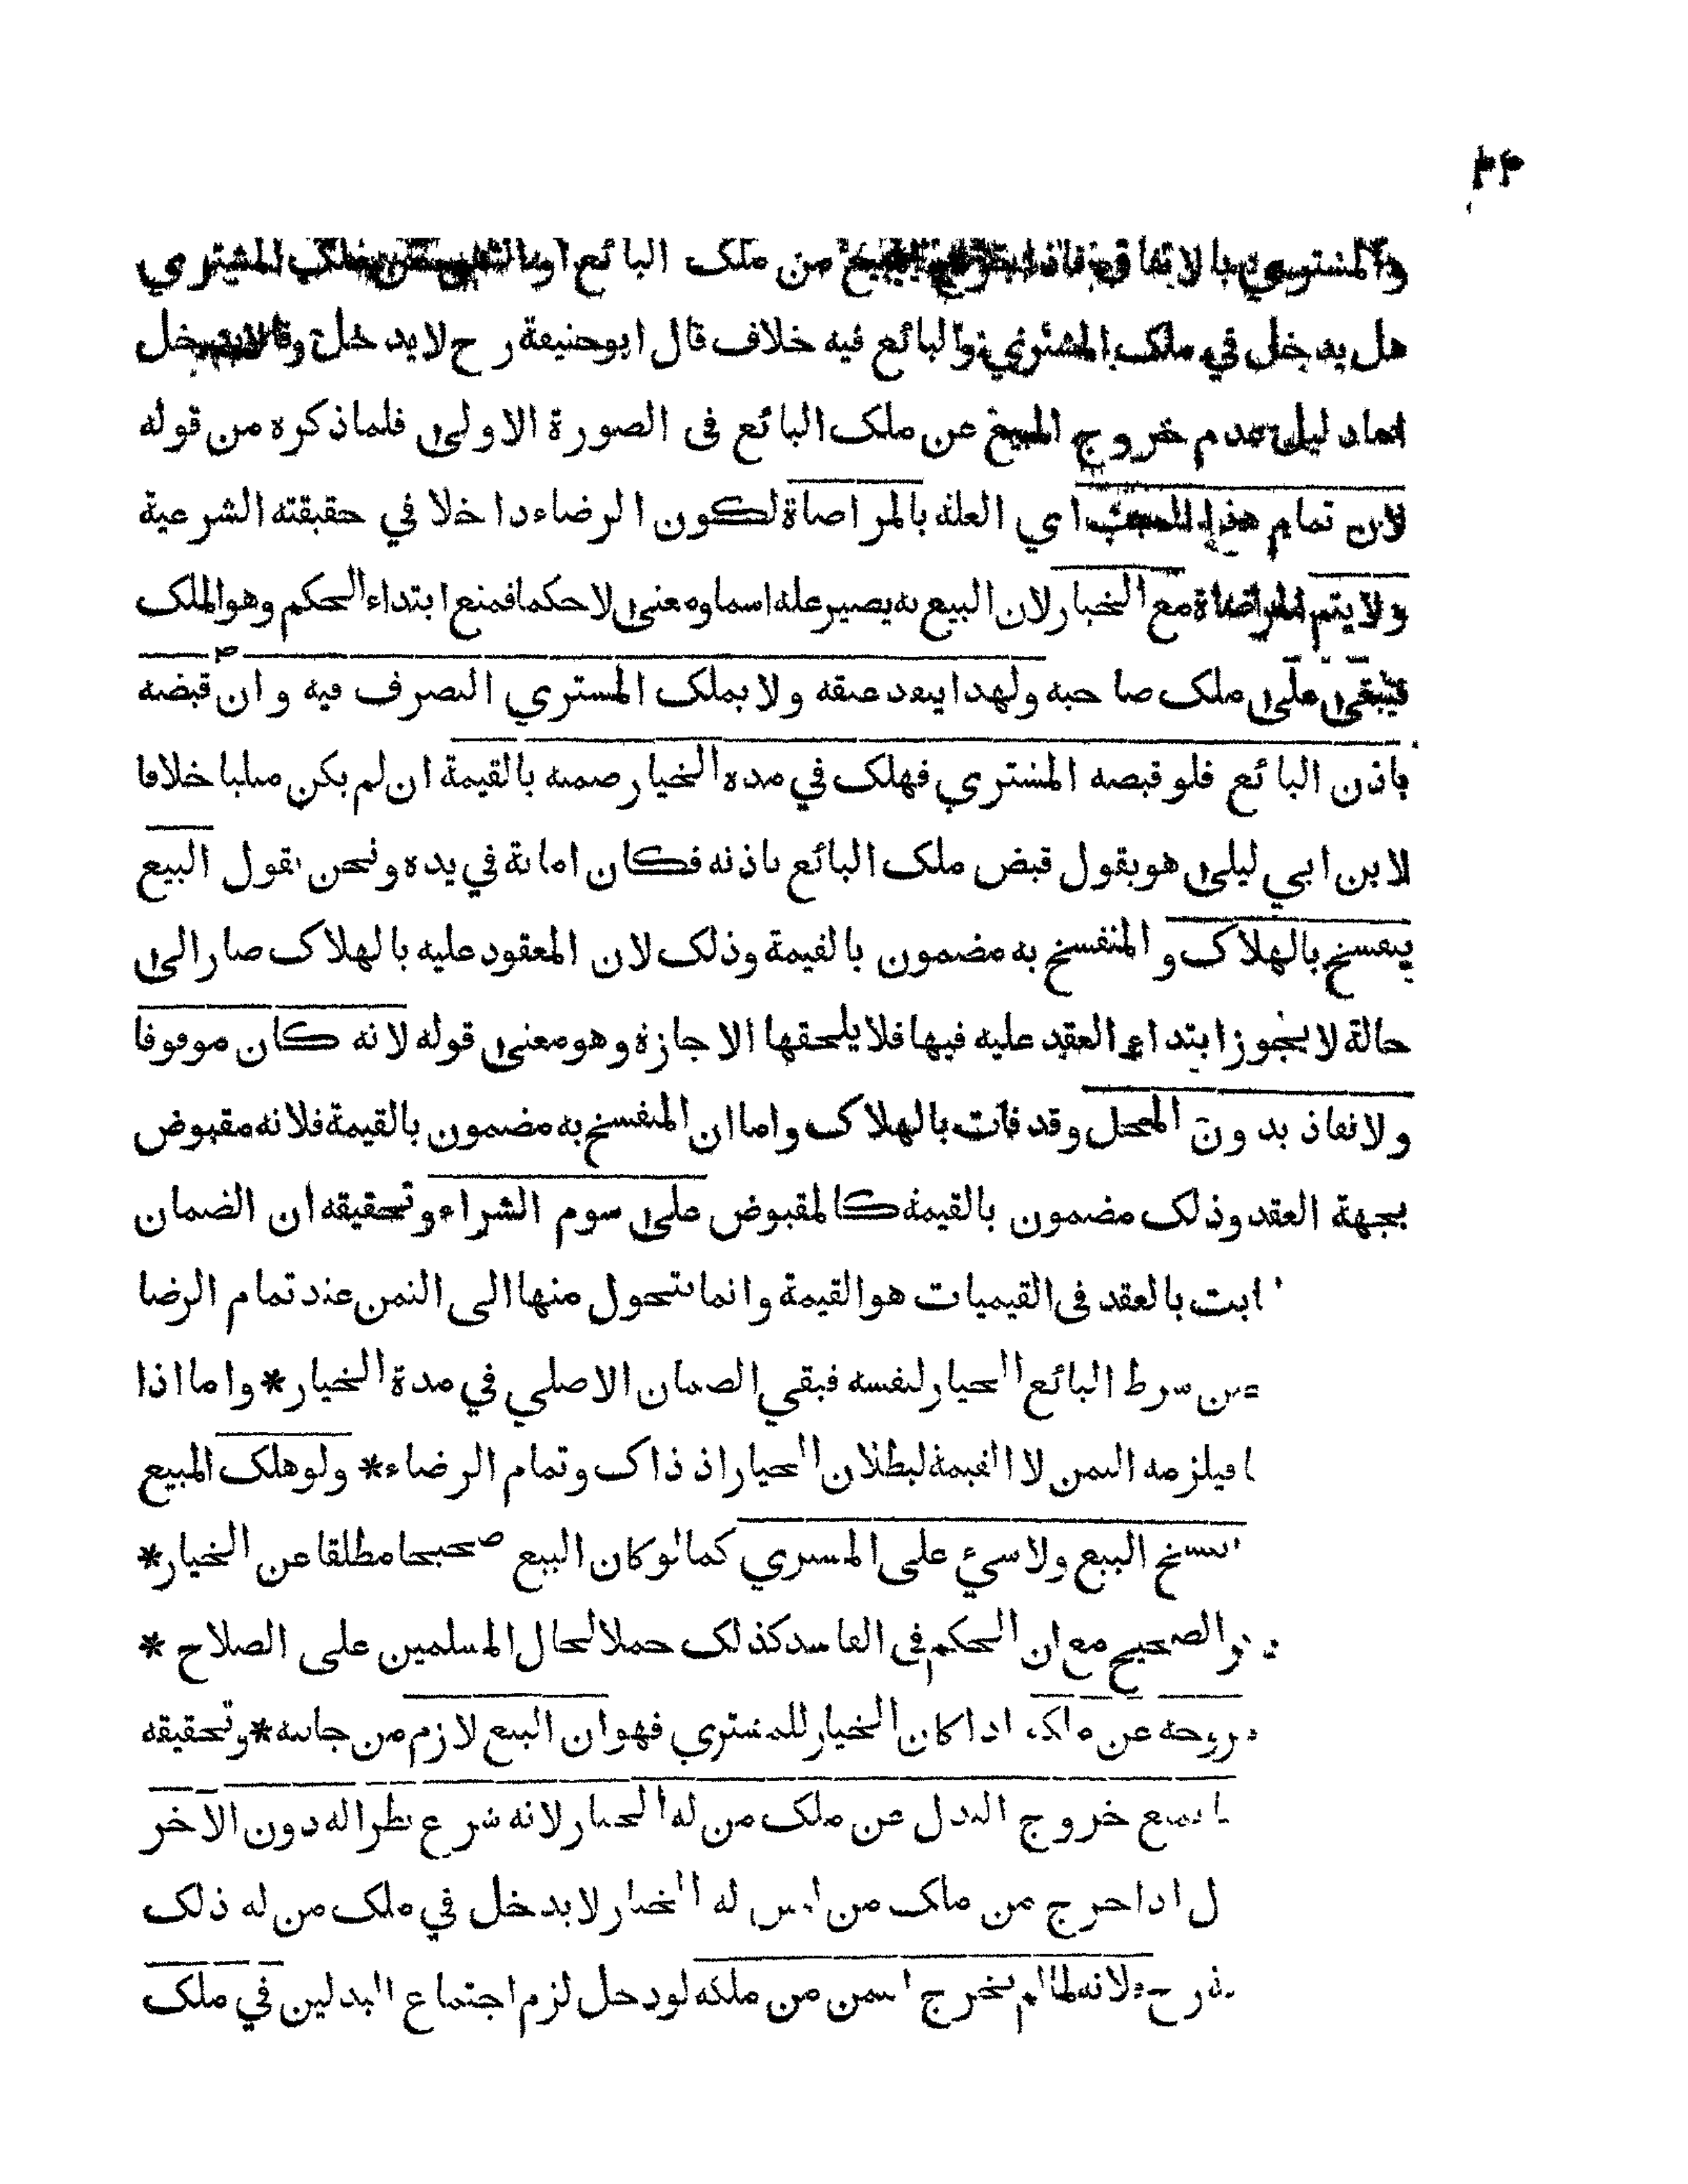 والمشتري بالاتفاق فاذا خرج المبيع من ملك البائع او الثمن من ملك المشتري
هل يدخل في ملك المشتري والبائع فيه خلاف قال ابوحنيفة رح لا يدخل وقالا يدخل
اما دليل عدم خروج المبيع عن ملك البائع فى الصورة الاولى فلماذكره من قوله
لان تمام هذا السبب اي العلة بالمراضاة لكون الرضاء داخلا في حقيقته الشرعية
ولا يتم المراضاة مع الخيار لان البيع به يصير علة اسما ومعنى لا حكما فمنع ابتداء الحكم وهو الملك
فيبقى على ملك صاحبه ولهذا ينفذ عتقه ولا يملك المشتري التصرف فيه وان قبضه
باذن البائع فلو قبضه المشتري فهلك في مدة الخيار ضمنه بالقيمة ان لم يكن مثليا خلافا
لابن ابي ليلى هو يقول قبض ملك البائع باذنه فكان امانة في يده ونحن نقول البيع
ينفسخ بالهلاك والمنفسخ به مضمون بالقيمة وذلك لان المعقود عليه بالهلاك صار الى
حالة لا يجوز ابتداء العقد عليه فيها فلا يلحقها الاجازة وهو معنى قوله لانه كان موقوفا
ولا نفاذ بدون المحل وقد فات بالهلاك واما ان المنفسخ به مضمون بالقيمة فلانه مقبوض
بجهة العقد وذلك مضمون بالقيمة كالمقبوض على سوم الشراء وتحقيقه ان الضمان
ابت بالعقد فى القيميات هو القيمة وانما تتحول منها الى الثمن عند تمام الرضا
شرط البائع الخيار لنفسه فبقي الضمان الاصلي في مدة الخيار * واما اذا
فيلزمه الثمن لا القيمة لبطلان الخيار اذ ذاك وتمام الرضاء * ولو هلك المبيع
البيع ولا شيء على المشتري كما لو كان البيع صحيحا مطلقا عن الخيار *
الصحيح مع ان الحكم فى الفاسد كذلك حملا لحال المسلمين على الصلاح *
عن ملكه اذا كان الخيار للمشتري فهو ان البيع لازم من جانبه * وتحقيقه
خروج البدل عن ملك من له الخيار لانه شرع نظرا له دون الآخر
ل اذا خرج من ملك من ليس له الخيار لا يدخل في ملك من له ذلك
رح لانه لما لم يخرج الثمن من ملكه لو دخل لزم اجتماع البدلين في ملك